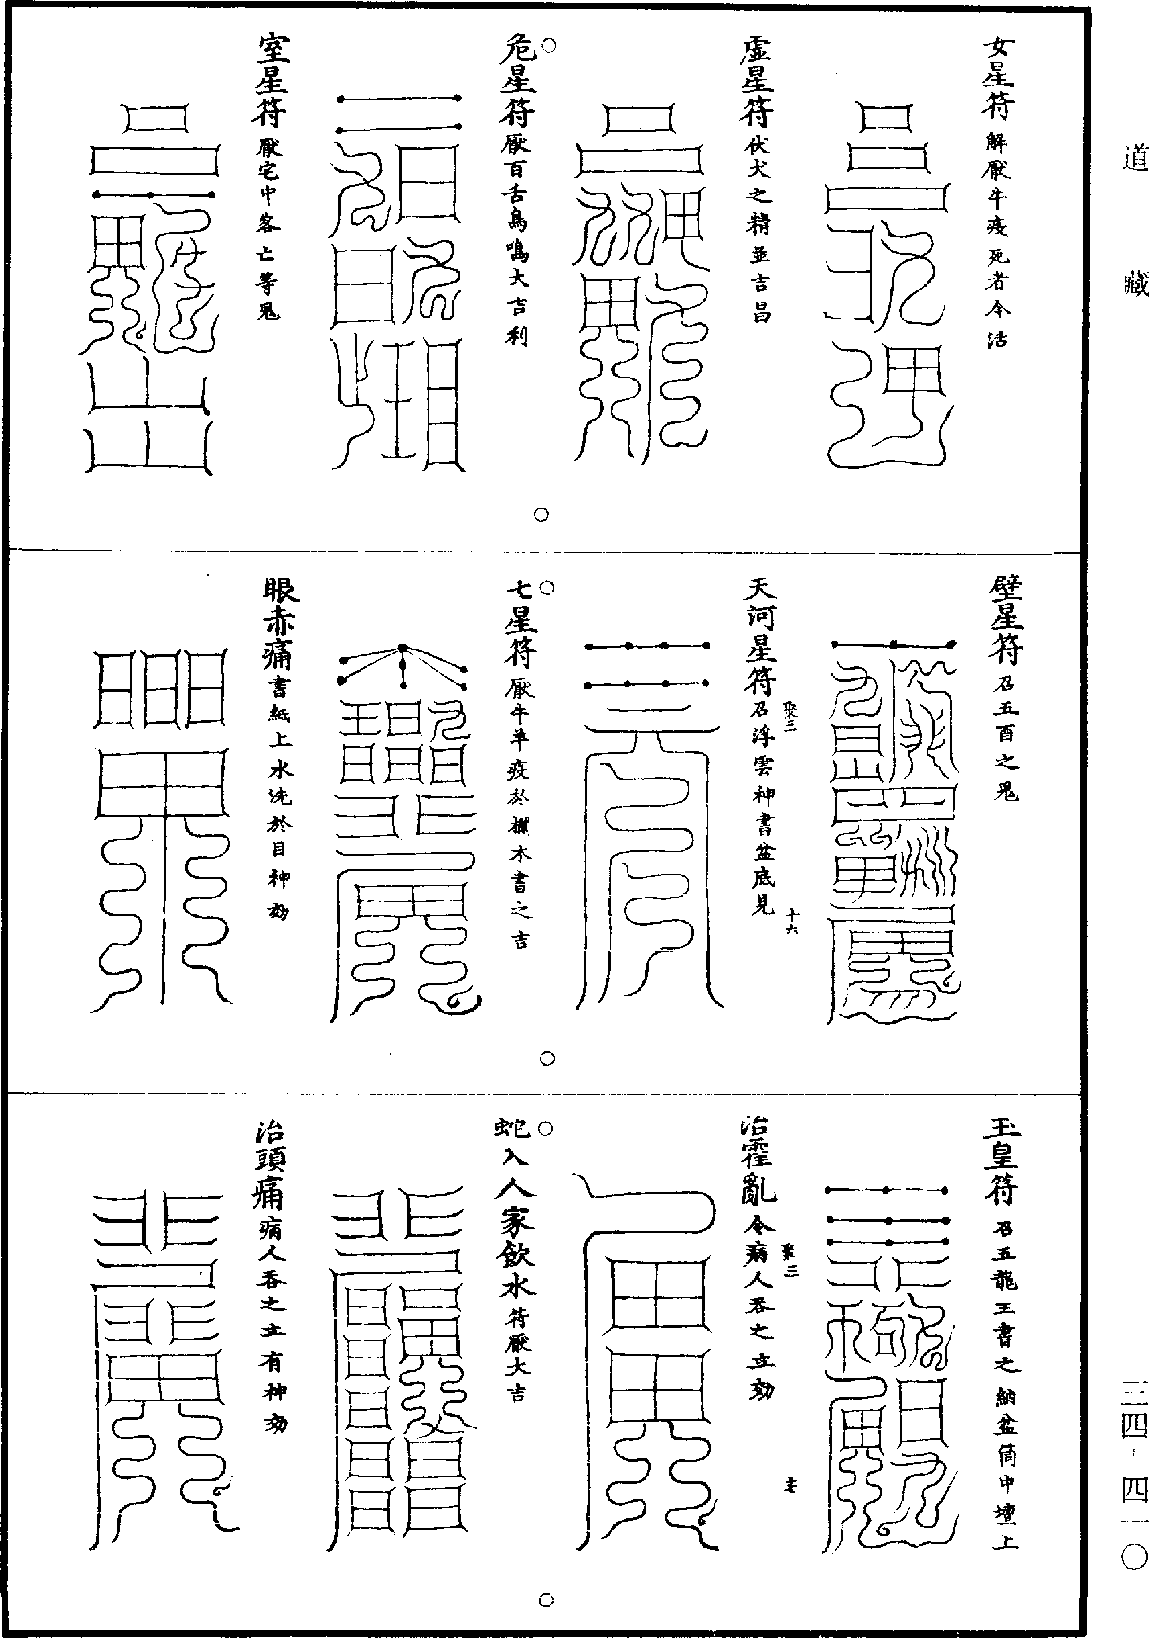 道藏
女星符 解厭牛疫死者令活
虛星符 伏犬之精並吉昌
危星符 厭百舌鳥鳴大吉利
室星符 厭宅中客亡等鬼
壁星符 召五酉之鬼
天河星符 召浮雲神書盆底見
聚三
十六
七星符 厭牛羊疫於欄木書之吉
眼赤痛 書紙上水洗於目神効
玉皇符 召五龍王書之納盆筒中壇上
治霍亂 令病人吞之立効
聚三
蛇入人家飲水 符厭大吉
治頭痛 病人吞之立有神効
三四-四一〇